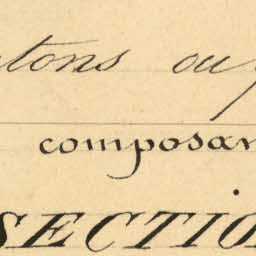 tons ou
composan
SECTIO